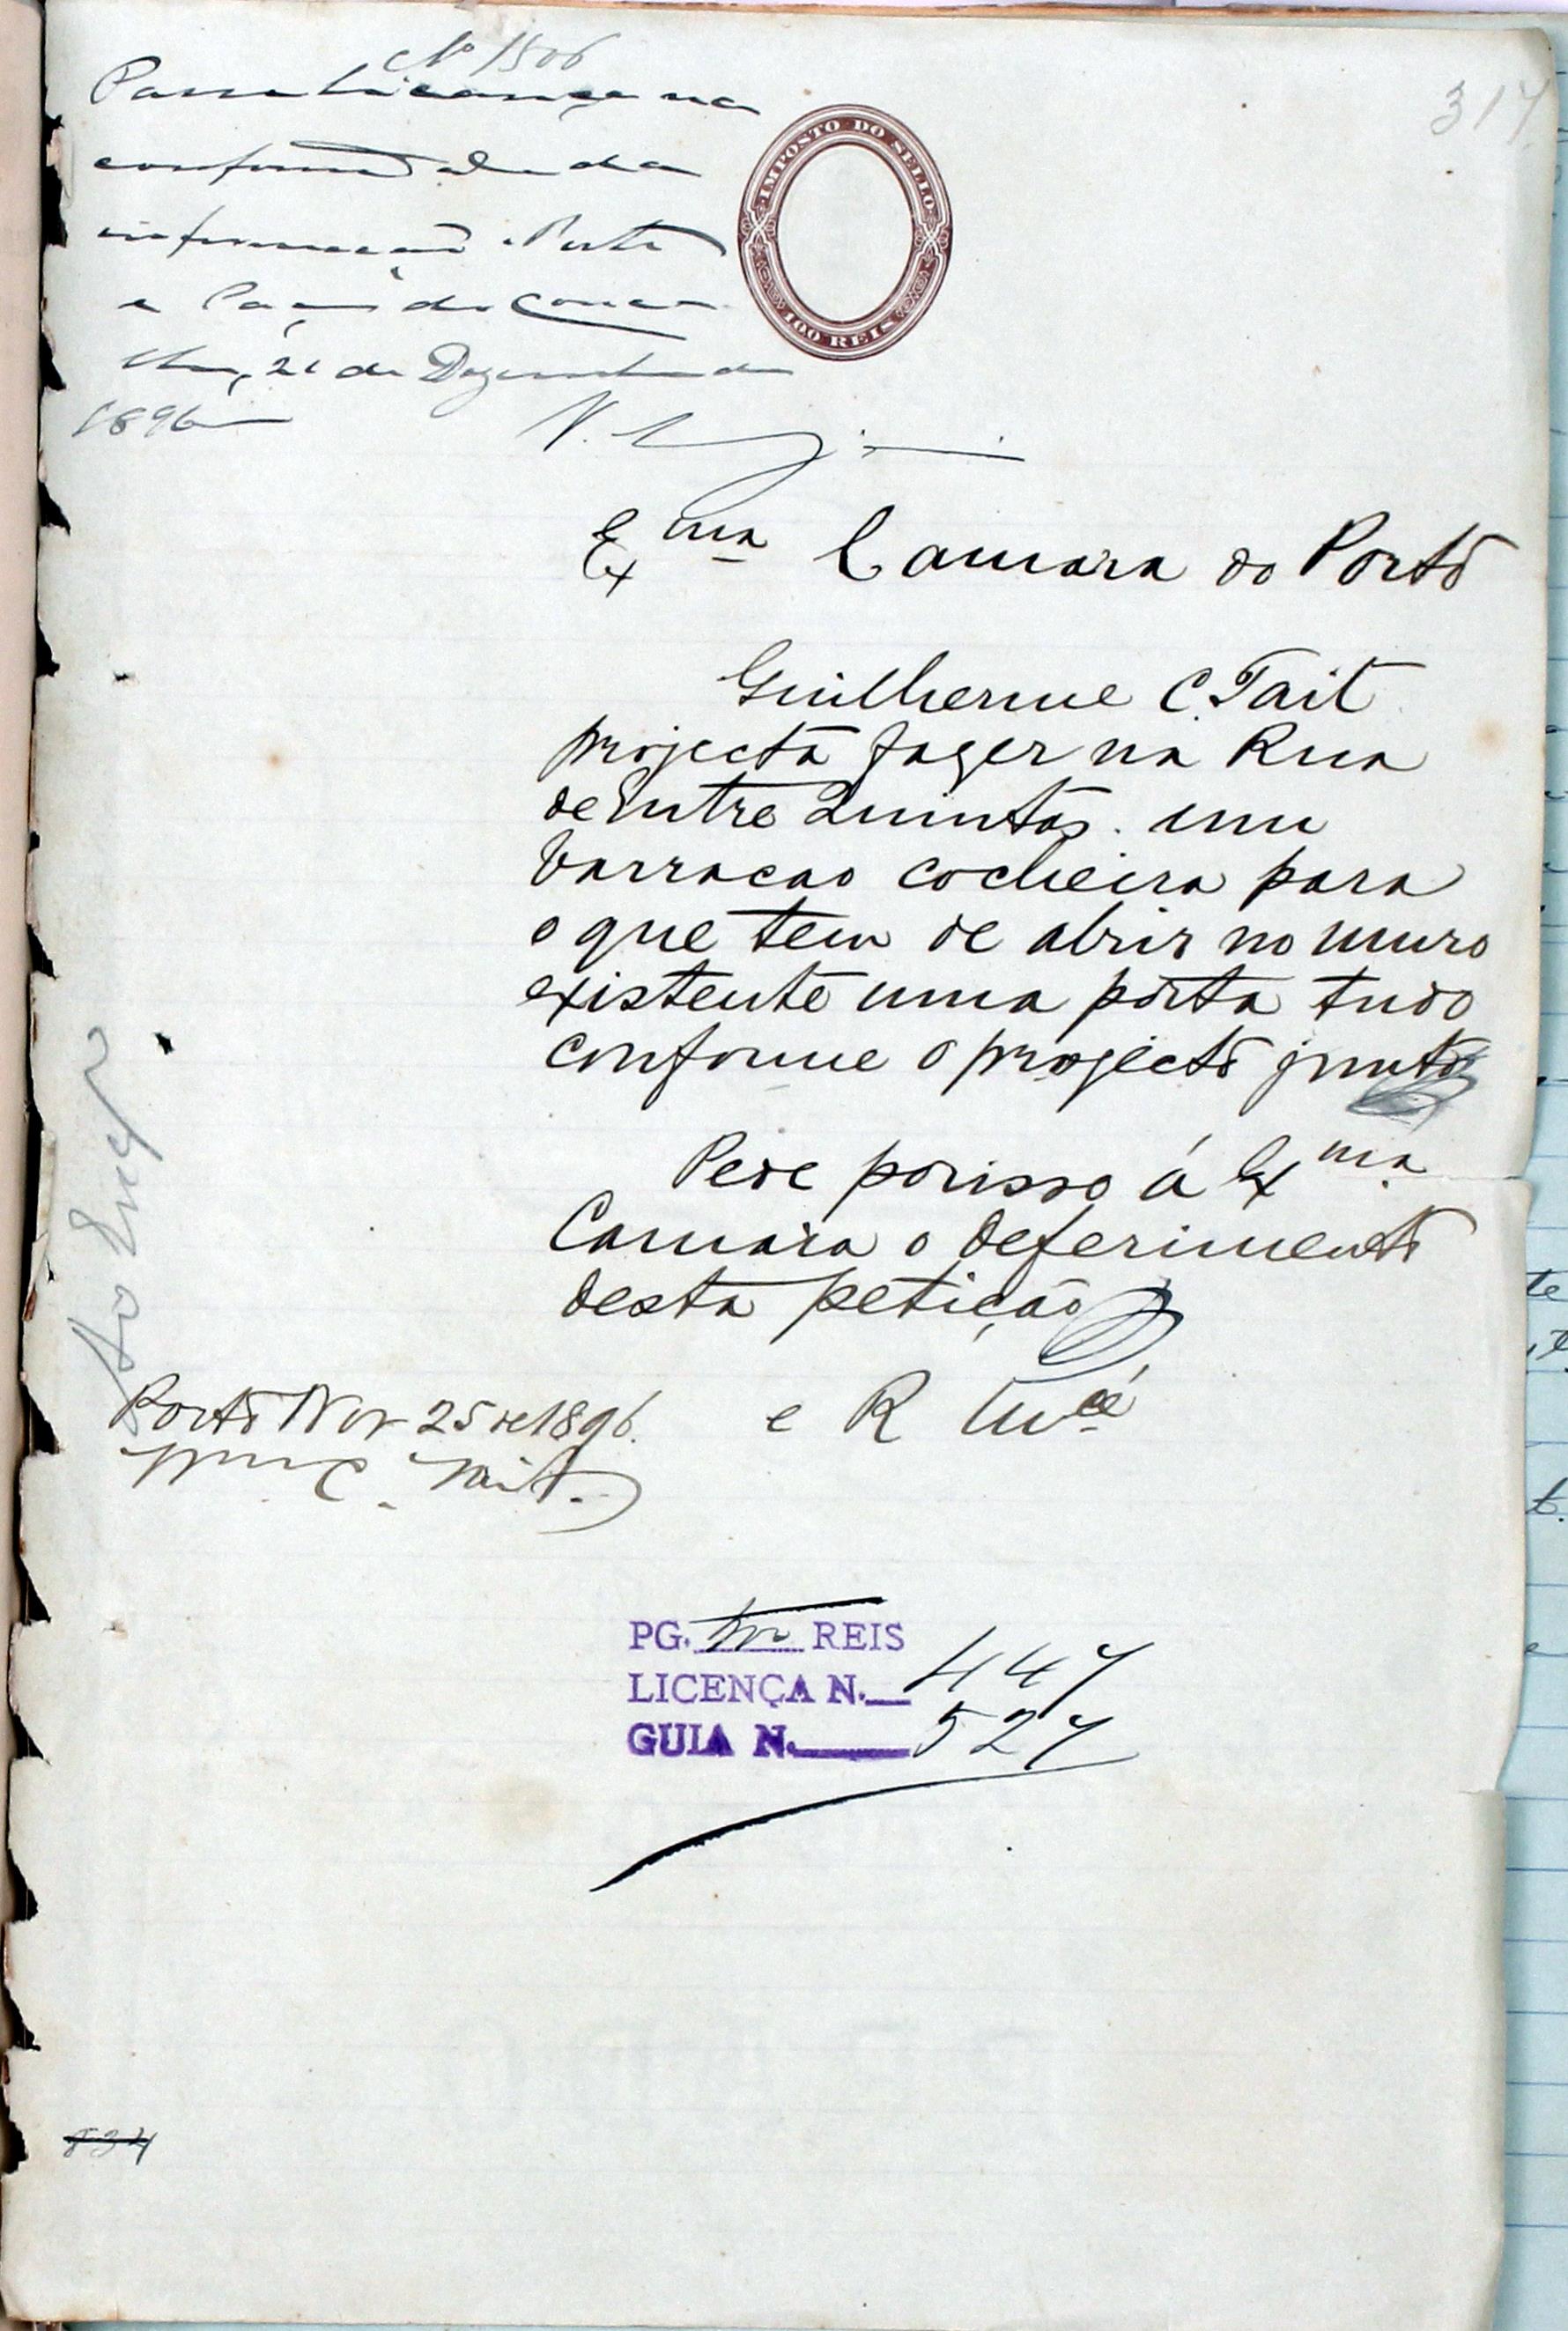 Nº 1506
317
Passe licença na
conformidade da
informação. Porto
e Paços do Conce-
lho, 21 de Dezembro de
1896
IMPOSTO DO SELLO
100 REIS
Exma Camara do Porto
Guilherme C. Tait
projecta fazer na Rua
de Entre Quintas. um
barracao cocheira para
o que tem de abrir no muro
existente uma porta tudo
conforme o projecto junto
Pede porisso á Exma
Camara o deferimento
desta petição
e R Mcê
Ao Engº
Porto Nov 25 de 1896.
Wm C. Tait.
PG. REIS
LICENÇA N. 447
GUIA N. 527
834